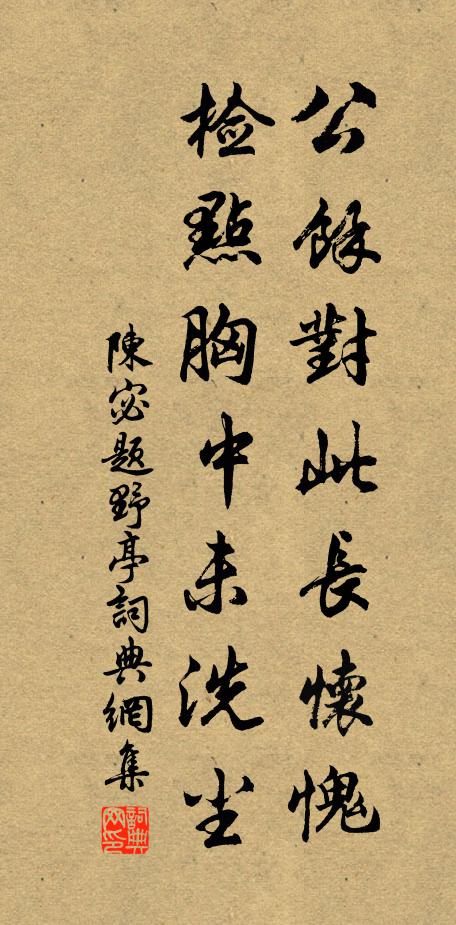 公餘對此長懷愧
檢點胸中未洗尘
陳宓題野亭詞典網集
詞典网印